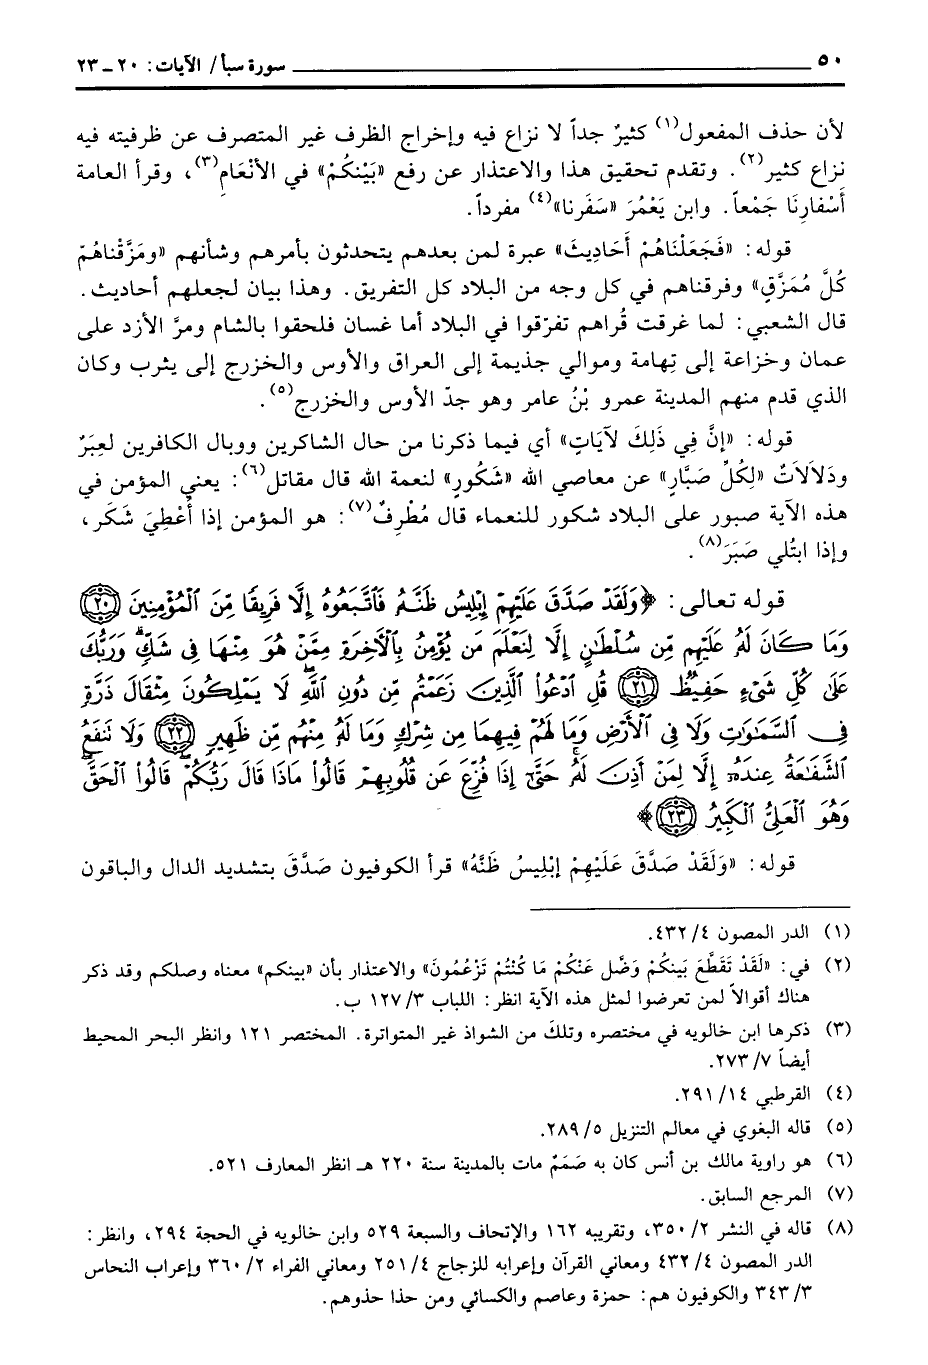 ٥٠ سورة سبأ / الآيات: ٢٠ ـ ٢٣
لأن حذف المفعول(١) كثيرٌ جداً لا نزاع فيه وإخراج الظرف غير المتصرف عن ظرفيته فيه
نزاع كثير(٢). وتقدم تحقيق هذا والاعتذار عن رفع «بَيْنكُمْ» في الأنْعَامِ(٣)، وقرأ العامة
أَسْفارِنَا جَمْعاً. وابن يَعْمُرَ «سَفَرنا»(٤) مفرداً.
قوله: «فَجَعَلْنَاهُمْ أَحَادِيثَ» عبرة لمن بعدهم يتحدثون بأمرهم وشأنهم «ومَزَّقْناهُمْ
كُلَّ مُمَزَّقٍ» وفرقناهم في كل وجه من البلاد كل التفريق. وهذا بيان لجعلهم أحاديث.
قال الشعبي: لما غرقت قُراهم تفرّقوا في البلاد أما غسان فلحقوا بالشام ومرَّ الأزد على
عمان وخزاعة إلى تِهامة وموالي جذيمة إلى العراق والأوس والخزرج إلى يثرب وكان
الذي قدم منهم المدينة عمرو بْنُ عامر وهو جدّ الأوس والخزرج(٥).
قوله: «إنَّ فِي ذَلِكَ لآيَاتٍ» أي فيما ذكرنا من حال الشاكرين ووبال الكافرين لعِبَرٌ
ودَلاَلاَتٌ «لِكُلِّ صَبَّارٍ» عن معاصي الله «شَكُورٍ» لنعمة الله قال مقاتل(٦): يعني المؤمن في
هذه الآية صبور على البلاد شكور للنعماء قال مُطْرِفٌ(٧): هو المؤمن إذا أُعْطِيَ شَكَر،
وإذا ابتُلي صَبَرَ(٨).
قوله تعالى: ﴿وَلَقَدْ صَدَّقَ عَلَيْهِمْ إِبْلِيسُ ظَنَّهُۥ فَٱتَّبَعُوهُ إِلَّا فَرِيقًا مِّنَ ٱلْمُؤْمِنِينَ ٢٠
وَمَا كَانَ لَهُۥ عَلَيْهِم مِّن سُلْطَٰنٍ إِلَّا لِنَعْلَمَ مَن يُؤْمِنُ بِٱلْأَخِرَةِ مِمَّنْ هُوَ مِنْهَا فِى شَكٍّۗ وَرَبُّكَ
عَلَىٰ كُلِّ شَىْءٍ حَفِيظٌ ٢١ قُلِ ٱدْعُوا۟ ٱلَّذِينَ زَعَمْتُم مِّن دُونِ ٱللَّهِۖ لَا يَمْلِكُونَ مِثْقَالَ ذَرَّةٍ
فِى ٱلسَّمَٰوَٰتِ وَلَا فِى ٱلْأَرْضِ وَمَا لَهُمْ فِيهِمَا مِن شِرْكٍ وَمَا لَهُۥ مِنْهُم مِّن ظَهِيرٍ ٢٢ وَلَا تَنفَعُ
ٱلشَّفَٰعَةُ عِندَهُۥٓ إِلَّا لِمَنْ أَذِنَ لَهُۥۚ حَتَّىٰٓ إِذَا فُزِّعَ عَن قُلُوبِهِمْ قَالُوا۟ مَاذَا قَالَ رَبُّكُمْۖ قَالُوا۟ ٱلْحَقَّۖ
وَهُوَ ٱلْعَلِىُّ ٱلْكَبِيرُ ٢٣﴾
قوله: «وَلَقَدْ صَدَّقَ عَلَيْهِمْ إبْلِيسُ ظَنَّهُ» قرأ الكوفيون صَدَّقَ بتشديد الدال والباقون
(١) الدر المصون ٤/ ٤٣٢.
(٢) في: «لَقَدْ تَقَطَّعَ بَينكُمْ وَضَّل عَنْكُمْ مَا كُنْتُمْ تَزْعُمُونَ» والاعتذار بأن «بينكم» معناه وصلكم وقد ذكر
هناك أقوالاً لمن تعرضوا لمثل هذه الآية انظر: اللباب ٣/ ١٢٧ ب.
(٣) ذكرها ابن خالويه في مختصره وتلكَ من الشواذ غير المتواترة. المختصر ١٢١ وانظر البحر المحيط
أيضاً ٧/ ٢٧٣.
(٤) القرطبي ١٤/ ٢٩١.
(٥) قاله البغوي في معالم التنزيل ٥/ ٢٨٩.
(٦) هو راوية مالك بن أنس كان به صَمَمٌ مات بالمدينة سنة ٢٢٠ هـ انظر المعارف ٥٢١.
(٧) المرجع السابق.
(٨) قاله في النشر ٢/ ٣٥٠، وتقريبه ١٦٢ والإتحاف والسبعة ٥٢٩ وابن خالويه في الحجة ٢٩٤، وانظر:
الدر المصون ٤/ ٤٣٢ ومعاني القرآن وإعرابه للزجاج ٤/ ٢٥١ ومعاني الفراء ٢/ ٣٦٠ وإعراب النحاس
٣/ ٣٤٣ والكوفيون هم: حمزة وعاصم والكسائي ومن حذا حذوهم.